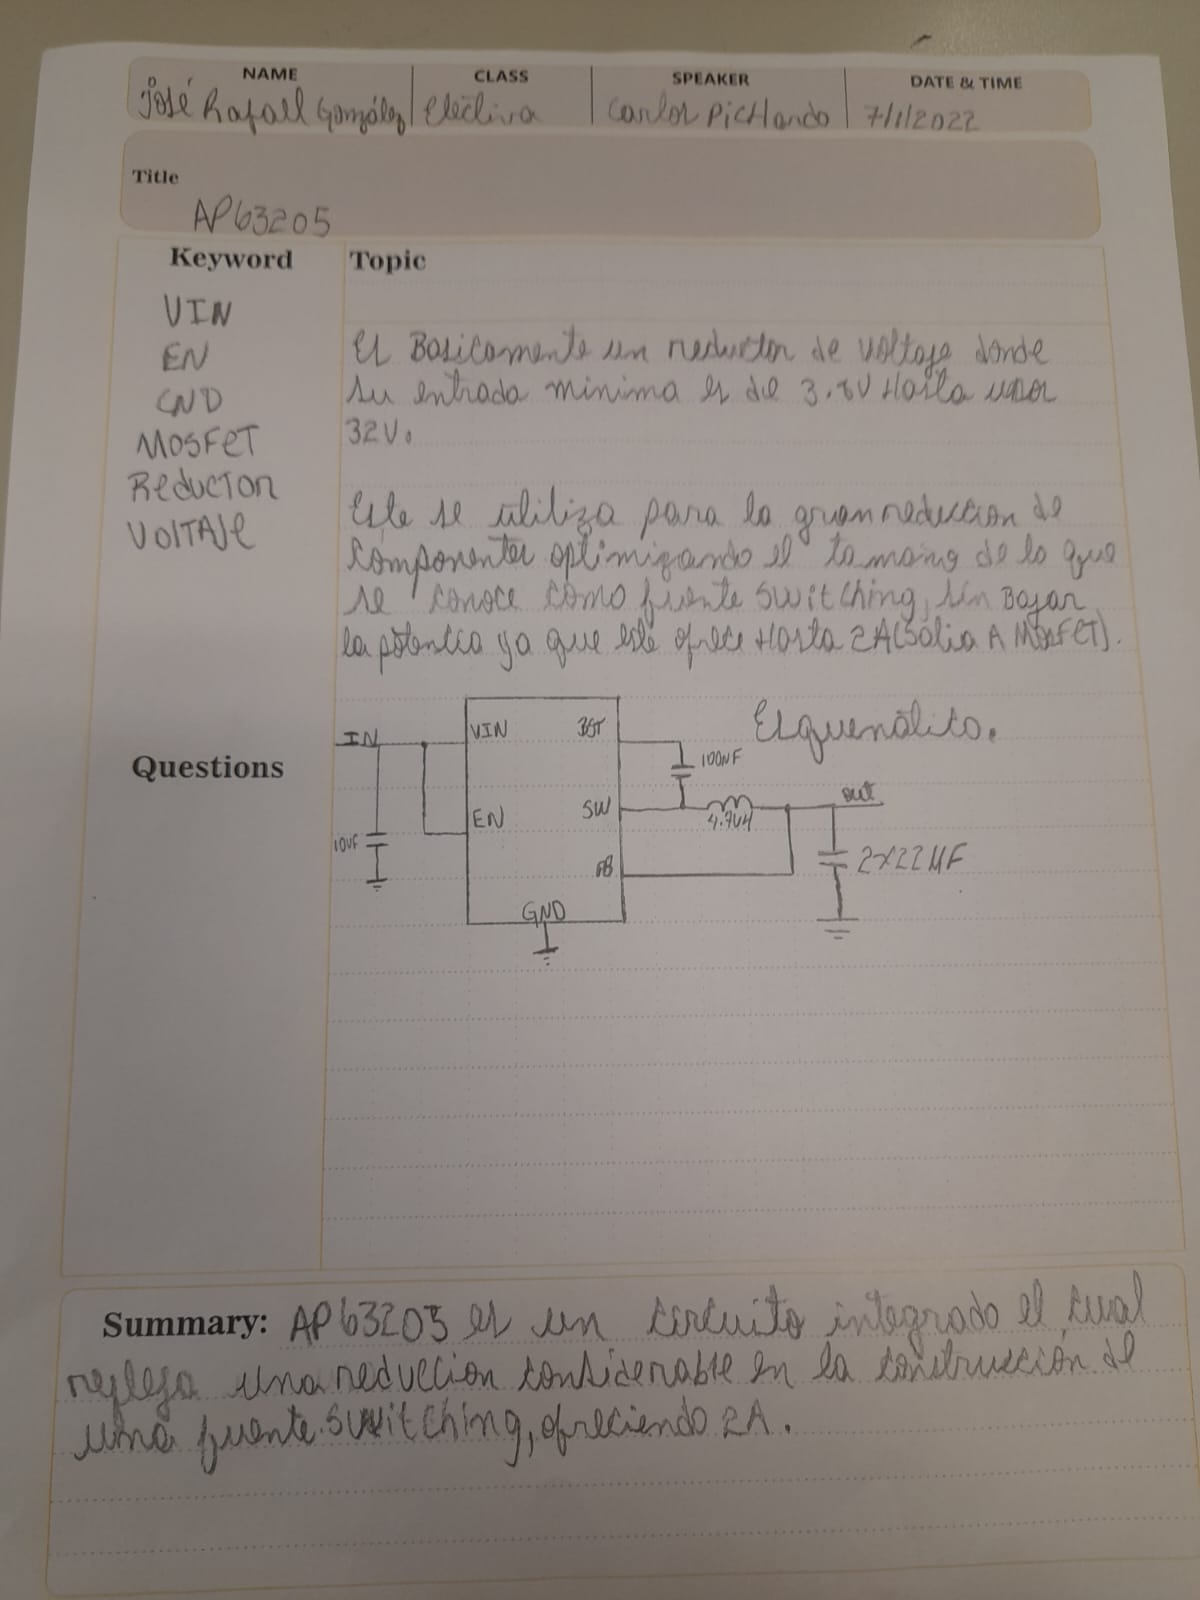 NAME CLASS SPEAKER DATE & TIME
José Rafael González Electiva Carlos Pichardo 7/1/2022
Title
AP63205
Keyword Topic
VIN
EN
GND
MOSFET
Reductor
VOLTAJE
El Basicamente un reductor de voltaje donde
su entrada minima es de 3.8V Hasta unos
32V.
Este se utiliza para la gran reduccion de
componentes optimizando el tamaño de lo que
se conoce como fuente switching, sin Bajar
la potencia ya que este ofrece Hasta 2A (Salia A MOSFET).
Esquemático.
IN VIN BST
100NF
EN SW 4.7UH out
10UF
FB 2x22UF
GND
Questions
Summary: AP63205 es un circuito integrado el cual
refleja una reduccion considerable en la construcción de
una fuente switching, ofreciendo 2A.